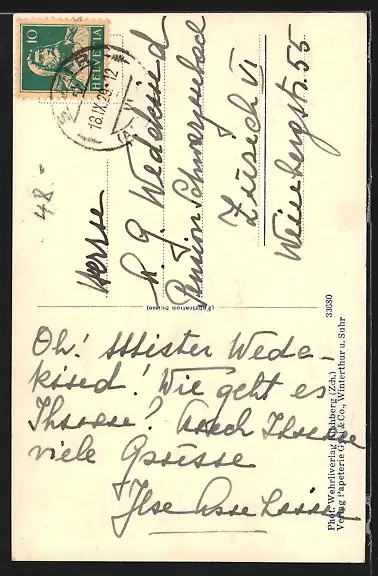 Oh! Mister Wede-
kind! Wie geht es
Ihnen? Auch Ihnen
viele Grüsse
Ilse
Herrn
G. Wedekind
Pension Schwarzenbach
Zürich VI
Weinbergstr. 55
10
HELVETIA
18.IX.29.-12
48.-
(Fabrication Suisse)
33680
Phot. Wehrliverlag Kilchberg (Zch.)
Verlag Papeterie & Co., Winterthur u. Suhr